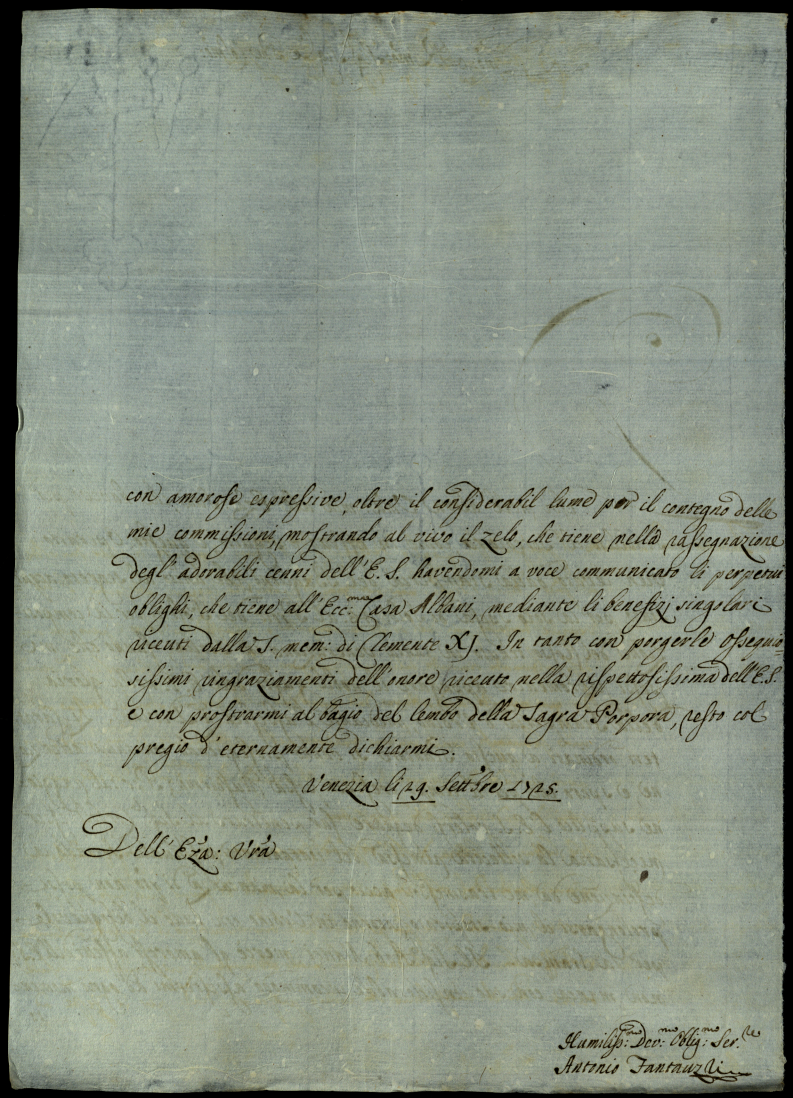 con amorose espressive, oltre il considerabil lume per il contegno delle
mie commissioni, mostrando al vivo il zelo, che tiene nella rassegnazione
degl' adorabili cenni dell' E. S. havendomi a voce communicato li perpetui
oblighi, che tiene all' Ecc:ma Casa Albani, mediante li benefizj singolari
riceuti dalla S. mem: di Clemente XJ. In tanto con porgerle ossequio=
sissimi ringraziamenti dell' onore riceuto nella rispettosissima dell' E. S.
e con prostrarmi al bagio del lembo della Sagra Porpora, resto col
pregio d' eternamente dichiarmi.
Venezia li 29. Settbre 1725.
Dell' Eza: Vra
Humiliss:mo Dev:mo Oblig:mo Ser.re
Antonio Fantauzzi